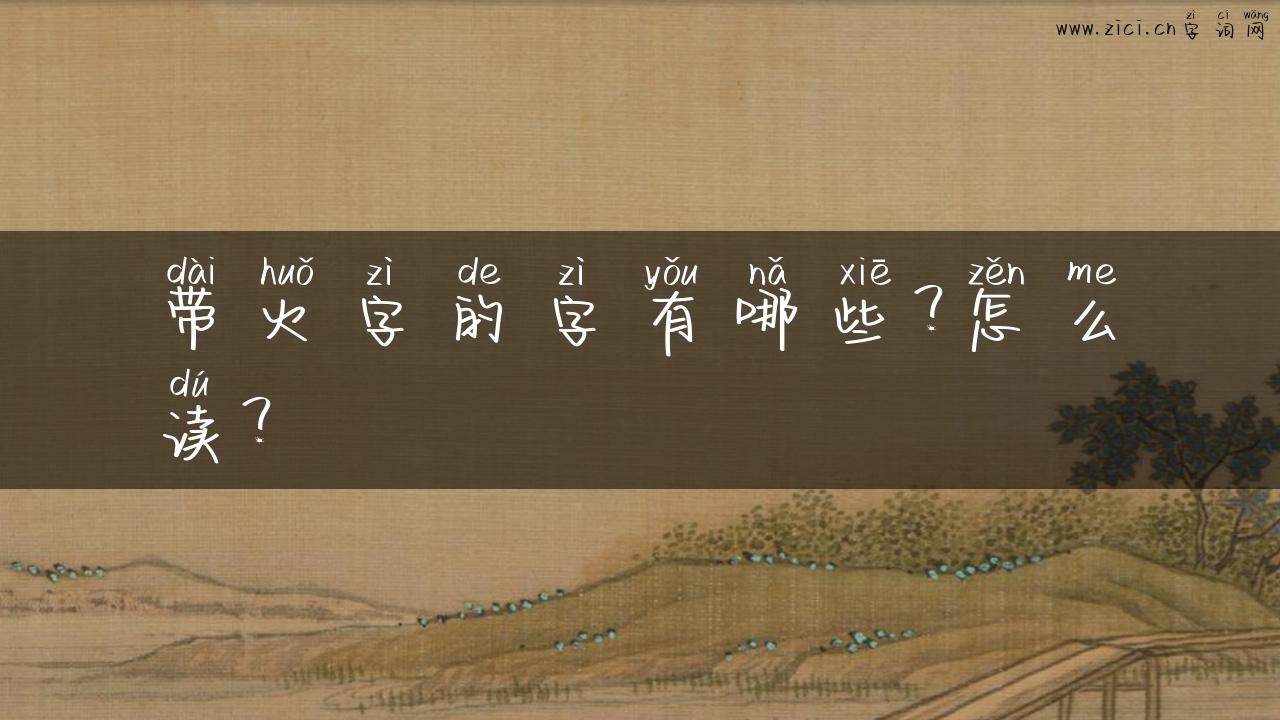 zì cí wǎng
www.zici.cn字词网
dài huǒ zì de zì yǒu nǎ xiē zěn me
带火字的字有哪些?怎么
dú
读?